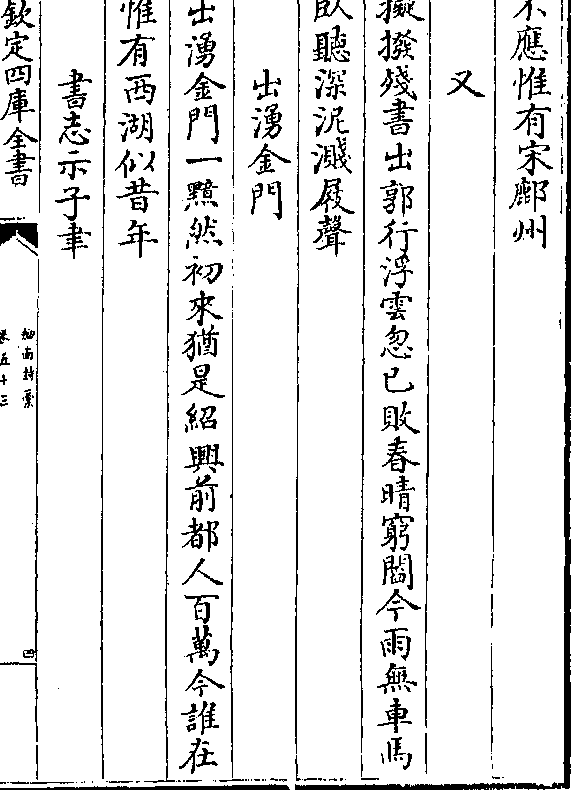 不應惟有宋鄜州
又
擬撥殘書出郭行浮雲忽已敗春晴窮閻今雨無車馬
臥聽深泥濺屐聲
出湧金門
出湧金門一黯然初來猶是紹興前都人百萬今誰在
惟有西湖似昔年
書志示子聿
欽定四庫全書
劍南詩稾
卷五十三
四